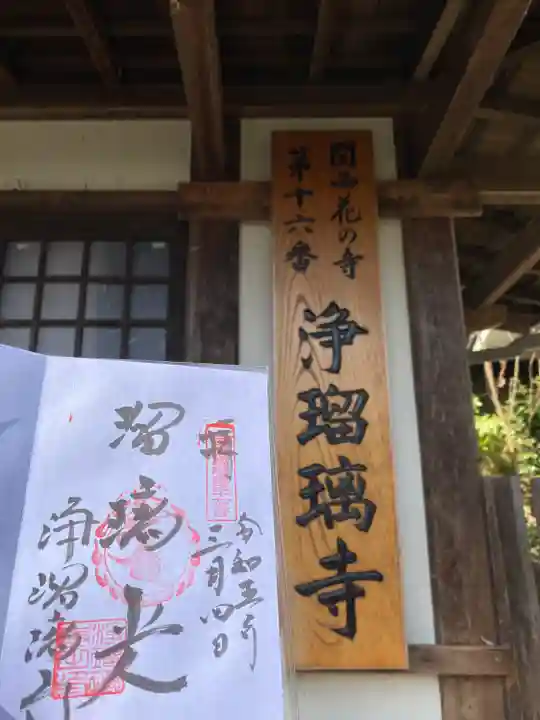 関西花の寺
第十六番
浄瑠璃寺
瑠璃光
三月四日
浄瑠璃寺